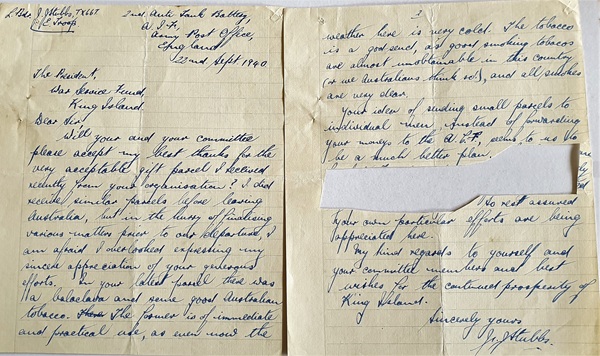 L/Bdr J. J. Stubbs, TX667.
"E" Troop
2nd. Anti Tank Battery,
A.I.F,
Army Post Office,
England
22nd Sept 1940
The President,
War Service Fund,
King Island.
Dear Sir,
Will your and your committee
please accept my best thanks for the
very acceptable gift parcel I received
recently from your organisation? I did
receive similar parcels before leaving
Australia, but in the hurry of finalising
various matters prior to our departure, I
am afraid I overlooked expressing my
sincere appreciation of your generous
efforts. In your latest parcel there was
a balaclava and some good Australian
tobacco. The former is of immediate
and practical use, as even now the
2
weather here is very cold. The tobacco
is a god send, as good smoking tobaccos
are almost unobtainable in this country
(or we Australians think so), and all smokes
are very dear.
Your idea of sending small parcels to
individual men instead of forwarding
your moneys to the A.I.F, seems to us to
be a much better plan.
so rest assured
your own particular efforts are being
appreciated here.
My kind regards to yourself and
your committee members and best
wishes for the continued prosperity of
King Island.
Sincerely yours
J. J. Stubbs.